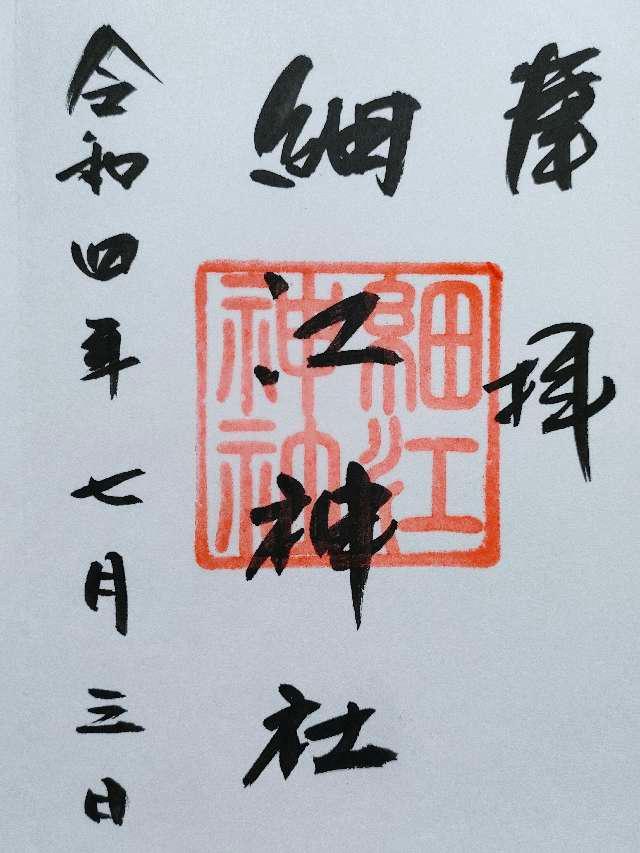 奉拝
細江神社
細江神社
令和四年七月三日